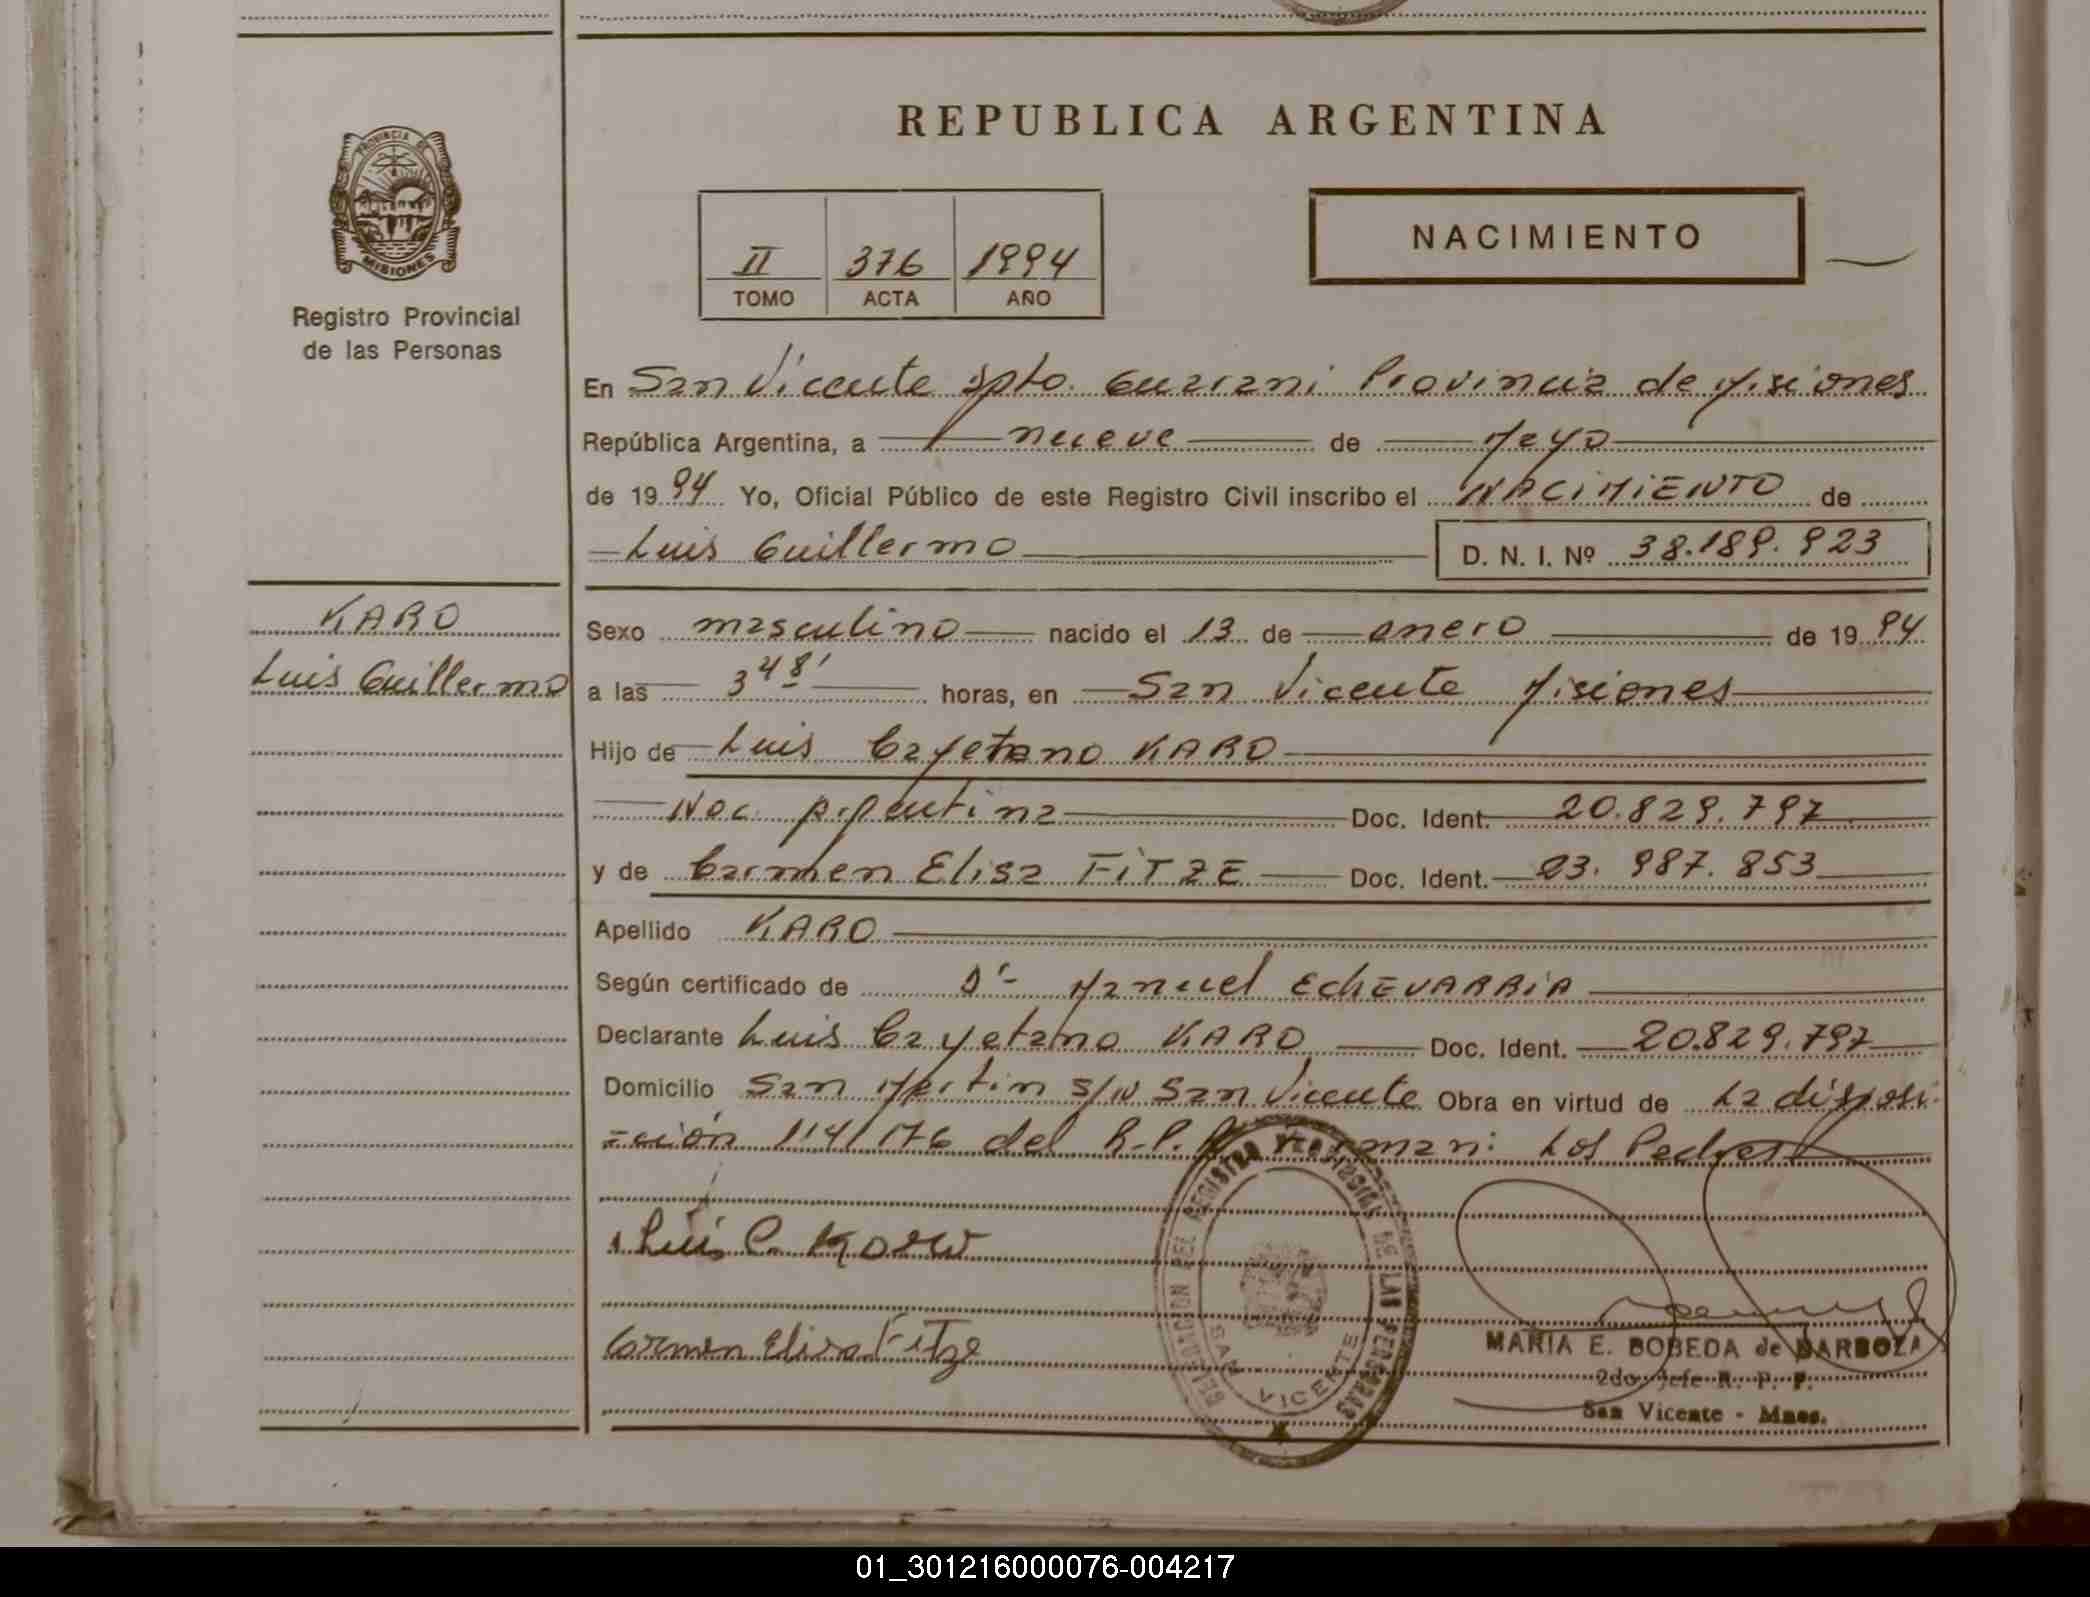 REPUBLICA ARGENTINA
PROVINCIA DE
MISIONES
Registro Provincial
de las Personas
NACIMIENTO
II 376 1994
TOMO ACTA AÑO
En San Vicente Dpto. Guarani Provincia de Misiones
República Argentina, a nueve de Mayo
de 1994 Yo, Oficial Público de este Registro Civil inscribo el NACIMIENTO de
Luis Guillermo D. N. I. Nº 38.189.923
KARO
Luis Guillermo
Sexo masculino nacido el 13 de enero de 1994
a las 3 48' horas, en San Vicente Misiones
Hijo de Luis Cayetano KARO
Nac. Argentina Doc. Ident. 20.829.797
y de Carmen Elisa FITZE Doc. Ident. 23.987.853
Apellido KARO
Según certificado de Dr Manuel EchEVARRIA
Declarante Luis Cayetano KARO Doc. Ident. 20.829.797
Domicilio San Martin S/N San Vicente Obra en virtud de La disposi
ción 114/76 del R.P. Los Padres
Luis C.
Carmen Elisa Fitze
DELEGACION DEL REGISTRO PROVINCIAL DE LAS PERSONAS
SAN VICENTE
MARIA E. BOBEDA de BARBOZA
2do. Jefe R. P. P.
San Vicente - Mnes.
01_301216000076-004217